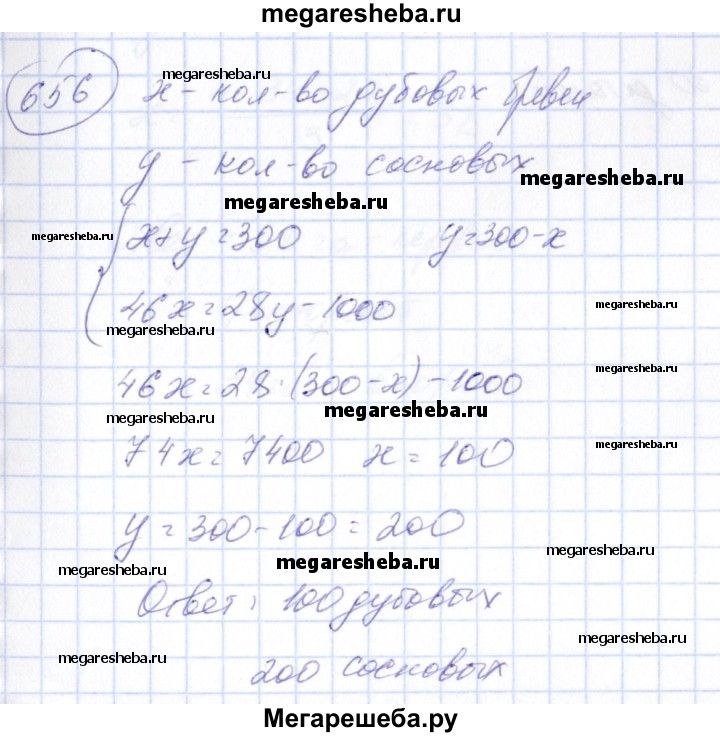 megaresheba.ru
656 megaresheba.ru
х - кол-во дубовых бревен
у - кол-во сосновых
megaresheba.ru
megaresheba.ru
megaresheba.ru х+у=300 у=300-х
46х=28у-1000 megaresheba.ru
megaresheba.ru
megaresheba.ru
46х=28·(300-х)-1000
megaresheba.ru megaresheba.ru
74х=7400 х=100 megaresheba.ru
у=300-100=200
megaresheba.ru megaresheba.ru megaresheba.ru
Ответ: 100 дубовых
megaresheba.ru
megaresheba.ru 200 сосновых
Мегарешеба.ру